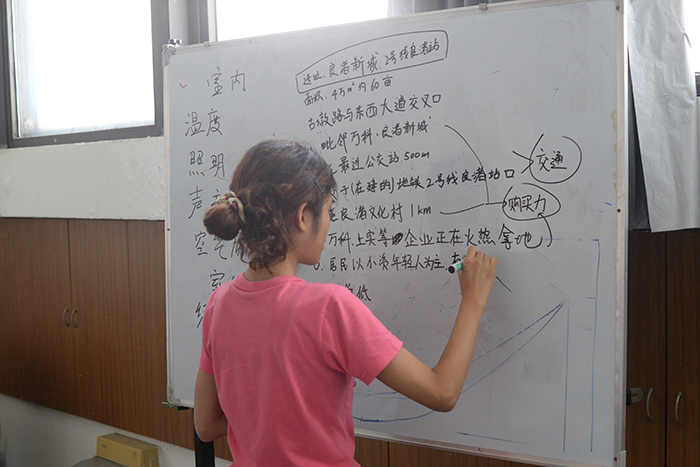 室内
温度
照明
声
空气
选址:良渚新城.2号线良渚站
面积:4万m² 约60亩
古墩路与东西大道交叉口
毗邻万科·良渚新城
最近公交站500m
于(在建的)地铁2号线良渚站口
良渚文化村1km
万科.上实等企业正在火热拿地
居民以小资年轻人为主.
低
交通
购买力